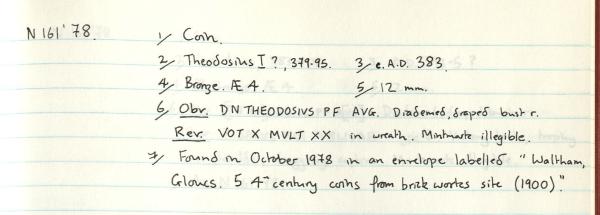 N 161' 78. 1/ Coin.
2/ Theodosius I ?, 379-95. 3/ c. A.D. 383.
4/ Bronze. Æ 4. 5/ 12 mm.
6/ Obv. DN THEODOSIVS PF AVG. Diademed, draped bust r.
Rev. VOT X MVLT XX in wreath. Mintmark illegible.
7/ Found in October 1978 in an envelope labelled "Waltham,
Gloucs. 5 4th century coins from brick works site (1900)."